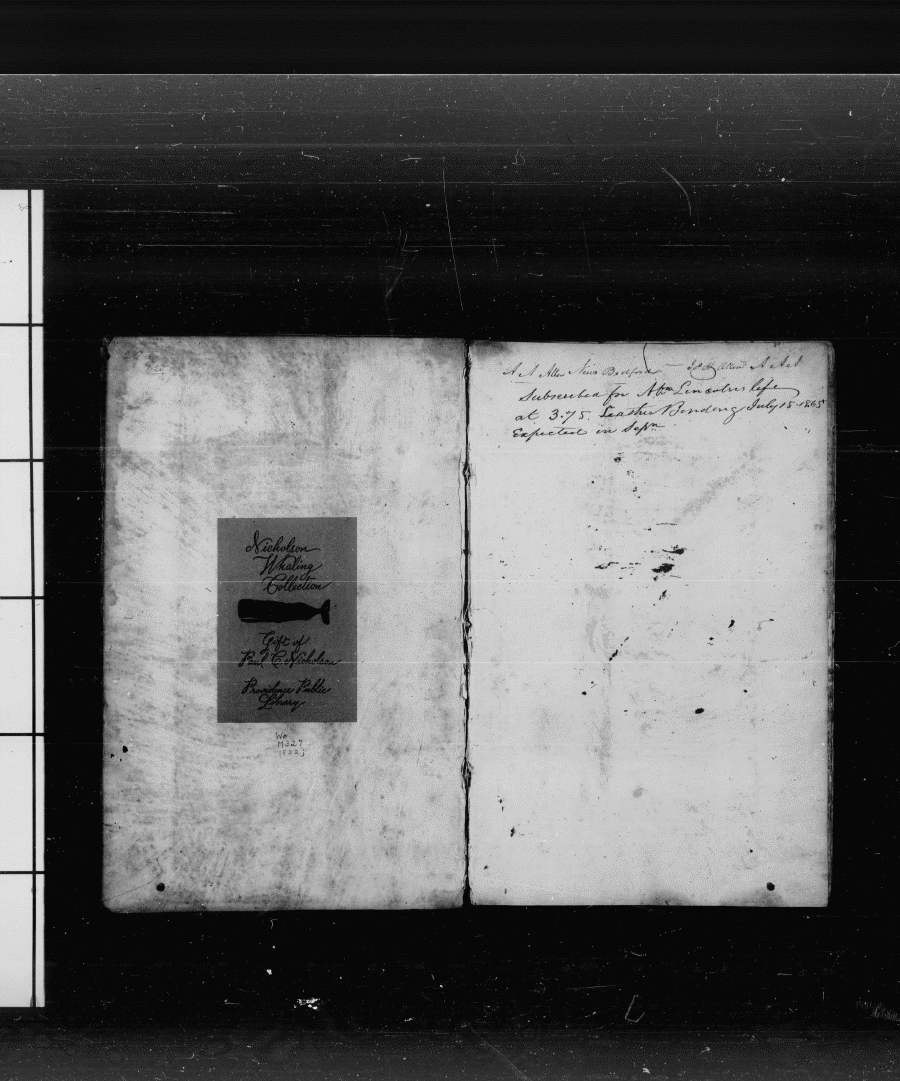 Nicholson
Whaling
Collection
Gift of
Paul C. Nicholson
Providence Public
Library
Wh
M327
1822j
A A Allen New Bedford Allen A A A
Subscribed for Abm Lincolns life
at 3.75. Leather Bindeng July 15 1865
Expected in Sepn